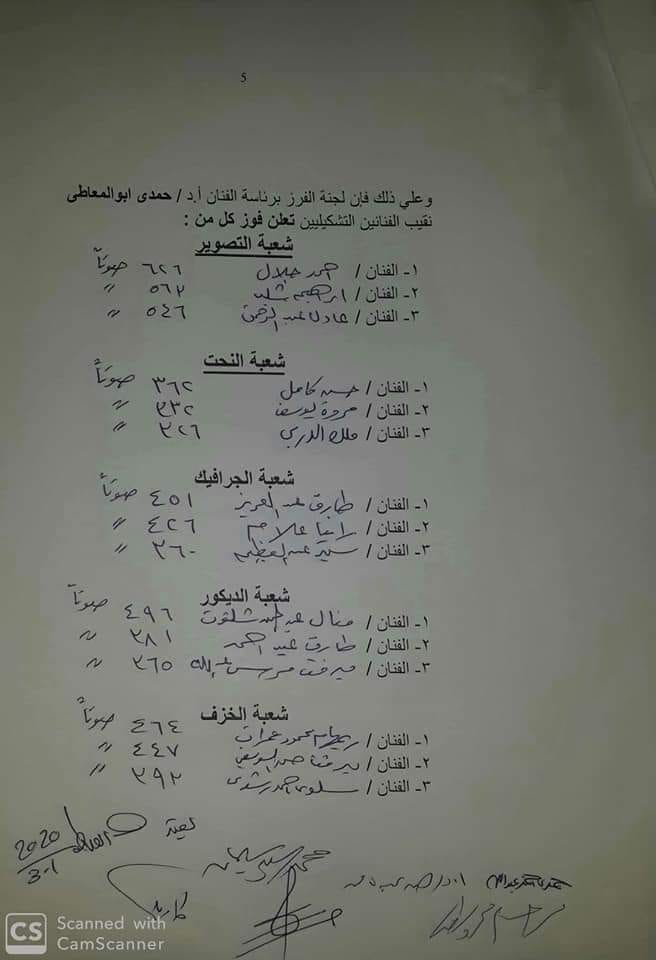 5
وعلي ذلك فإن لجنة الفرز برئاسة الفنان أ.د / حمدى ابوالمعاطى
نقيب الفنانين التشكيليين تعلن فوز كل من :
شعبة التصوير
١- الفنان / احمد جلال ٦٢٦ صوتاً
٢- الفنان / ابراهيم شلبى ٥٦٣ "
٣- الفنان / عادل عبد الرحمن ٥٤٦ "
شعبة النحت
١- الفنان / حسن كامل ٣٦٢ صوتاً
٢- الفنان / مروة يوسف ٣٣٢ "
٣- الفنان / ملك الدري ٣٢٦ "
شعبة الجرافيك
١- الفنان / طارق عبد العزيز ٤٥١ صوتاً
٢- الفنان / رانيا علام ٤٢٦ "
٣- الفنان / سيد عبد العظيم ٣٦٠ "
شعبة الديكور
١- الفنان / منال شلتوت ٤٩٦ صوتاً
٢- الفنان / طارق عبد احمد ٣٨١ "
٣- الفنان / ميرفت ٣٦٥ "
شعبة الخزف
١- الفنان / ريهام محمود عمران ٤٦٤ صوتاً
٢- الفنان / ميرفت السويفي ٤٤٧ "
٣- الفنان / سلوى احمد رشدى ٣٩٢ "
2020
3-1
CS Scanned with
CamScanner